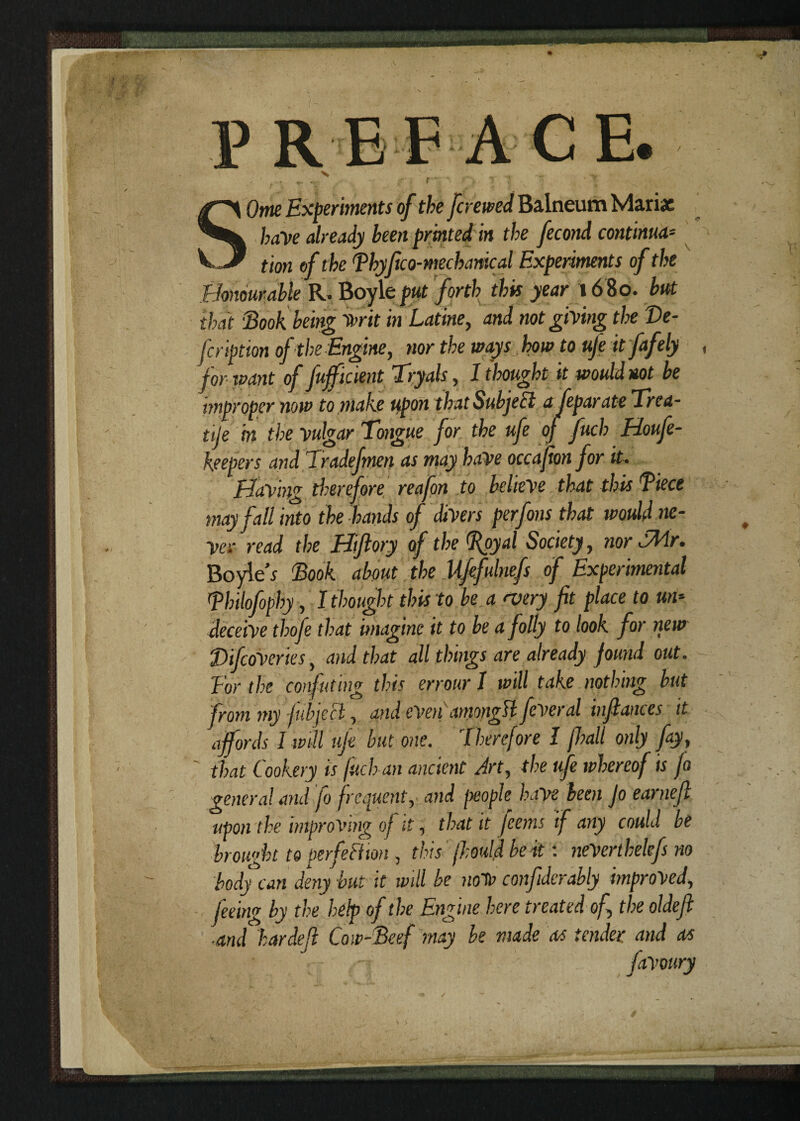 PREFACE.
SOme Experiments of the ſcrewed Balneum Mariæ
have already been printed in the ſecond continua=
tion of the Phyſico-mechanical Experiments of the
Honourable R. Boyle put forth this year 1680. but
that Book being writ in Latine, and not giving the De-
ſcription of the Engine, nor the ways how to uſe it ſafely
for want of ſufficient Tryals, I thought it would not be
improper now to make upon that Subject a ſeparate Trea-
tiſe in the vulgar Tongue for the uſe of ſuch Houſe-
keepers and Tradeſmen as may have occaſion for it.
Having therefore reaſon to believe that this Piece
may fall into the hands of divers perſons that would ne-
ver read the Hiſtory of the Royal Society, nor Mr.
Boyle's Book about the Uſefulneſs of Experimental
Philoſophy, I thought this to be a very fit place to un=
deceive thoſe that imagine it to be a folly to look for new
Diſcoveries, and that all things are already found out.
For the confuting this errour I will take nothing but
from my ſubject, and even amongſt ſeveral inſtances it
affords I will uſe but one. Therefore I ſhall only ſay,
that Cookery is ſuch an ancient Art, the uſe whereof is ſo
general and ſo frequent, and people have been ſo earneſt
upon the improving of it, that it ſeems if any could be
brought to perfection, this ſhould be it: nevertheleſs no
body can deny but it will be now conſiderably improved,
ſeeing by the help of the Engine here treated of, the oldeſt
and hardeſt Cow-Beef may be made as tender and as
ſavoury